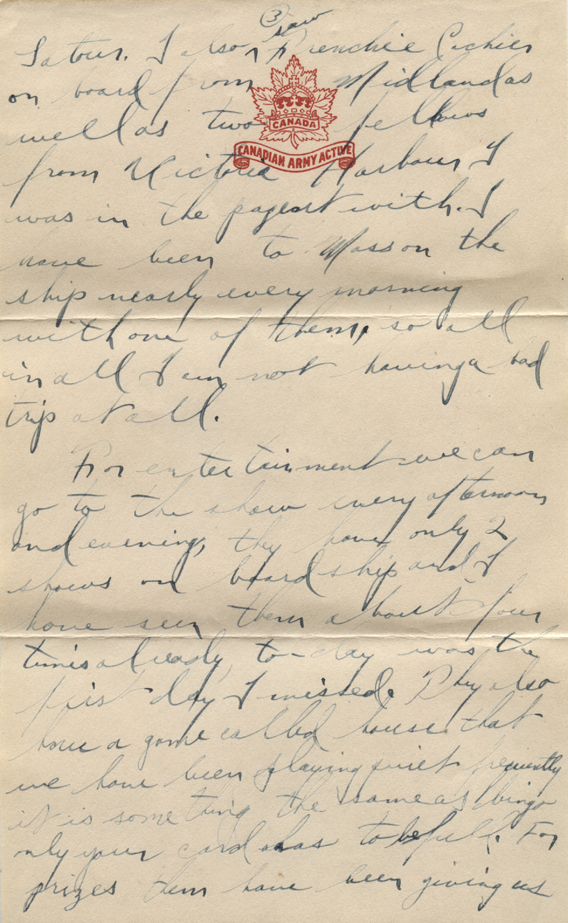 ③
saw
Latour. I also Frenchie Cichier
on board from Midland as
well as two fellows
CANADA
CANADIAN ARMY ACTIVE
from Victoria Harbour I
was in the pageant with. I
have been to Mass on the
ship nearly every morning
with one of them, so all
in all I am not having a bad
trip at all.
For entertainment we can
go to the show every afternoon
and evening, thy have only 2
shows on board ship and I
have seen them about four
times already, to-day was the
first day I missed. They also
have a game called house that
we have been playing quiet frequently
it is something the same as bingo
only your card has to be full. For
prizes them have been giving us